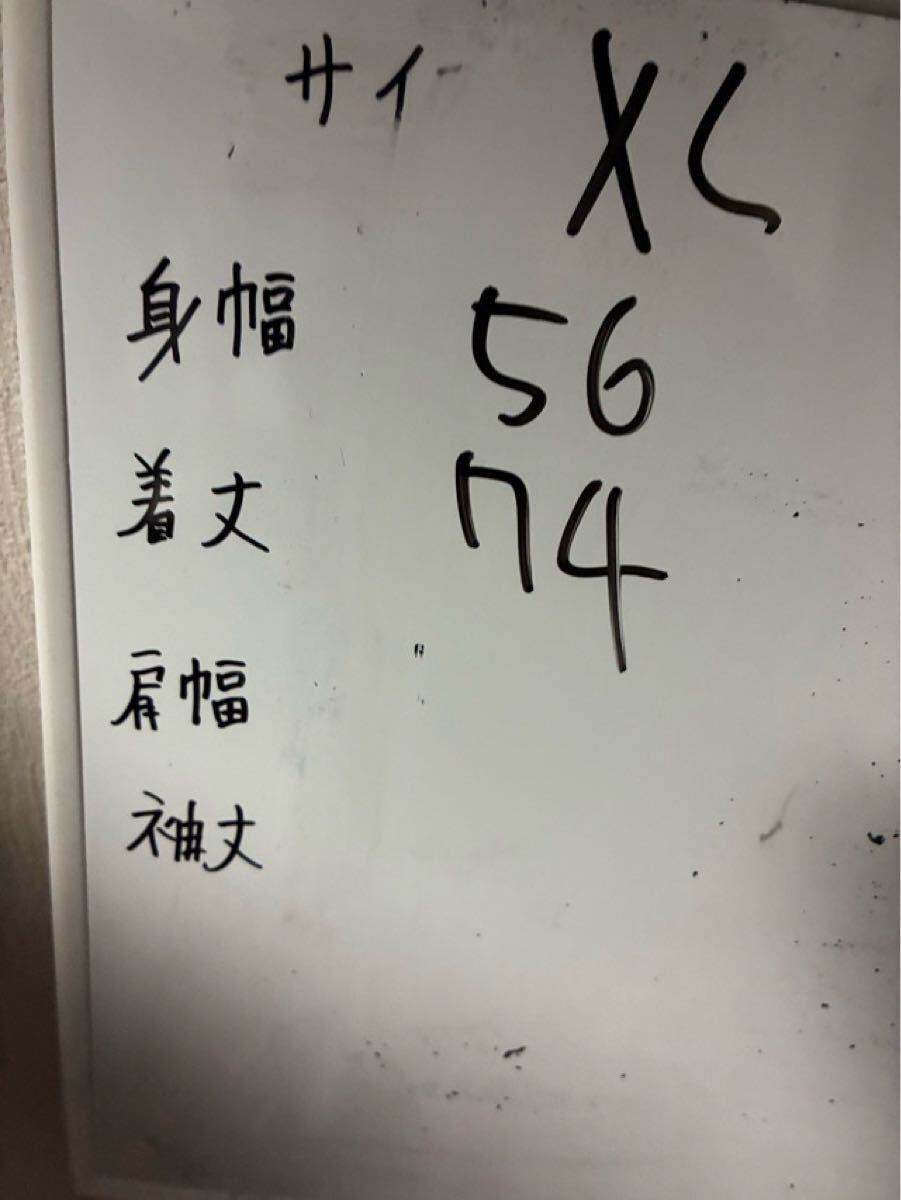 サイ XL
身幅 56
着丈 74
肩幅
袖丈